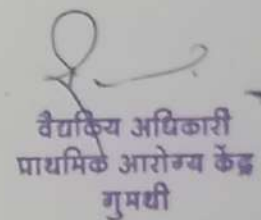 वैद्यकिय अधिकारी
प्राथमिक आरोग्य केंद्र
गुमथी